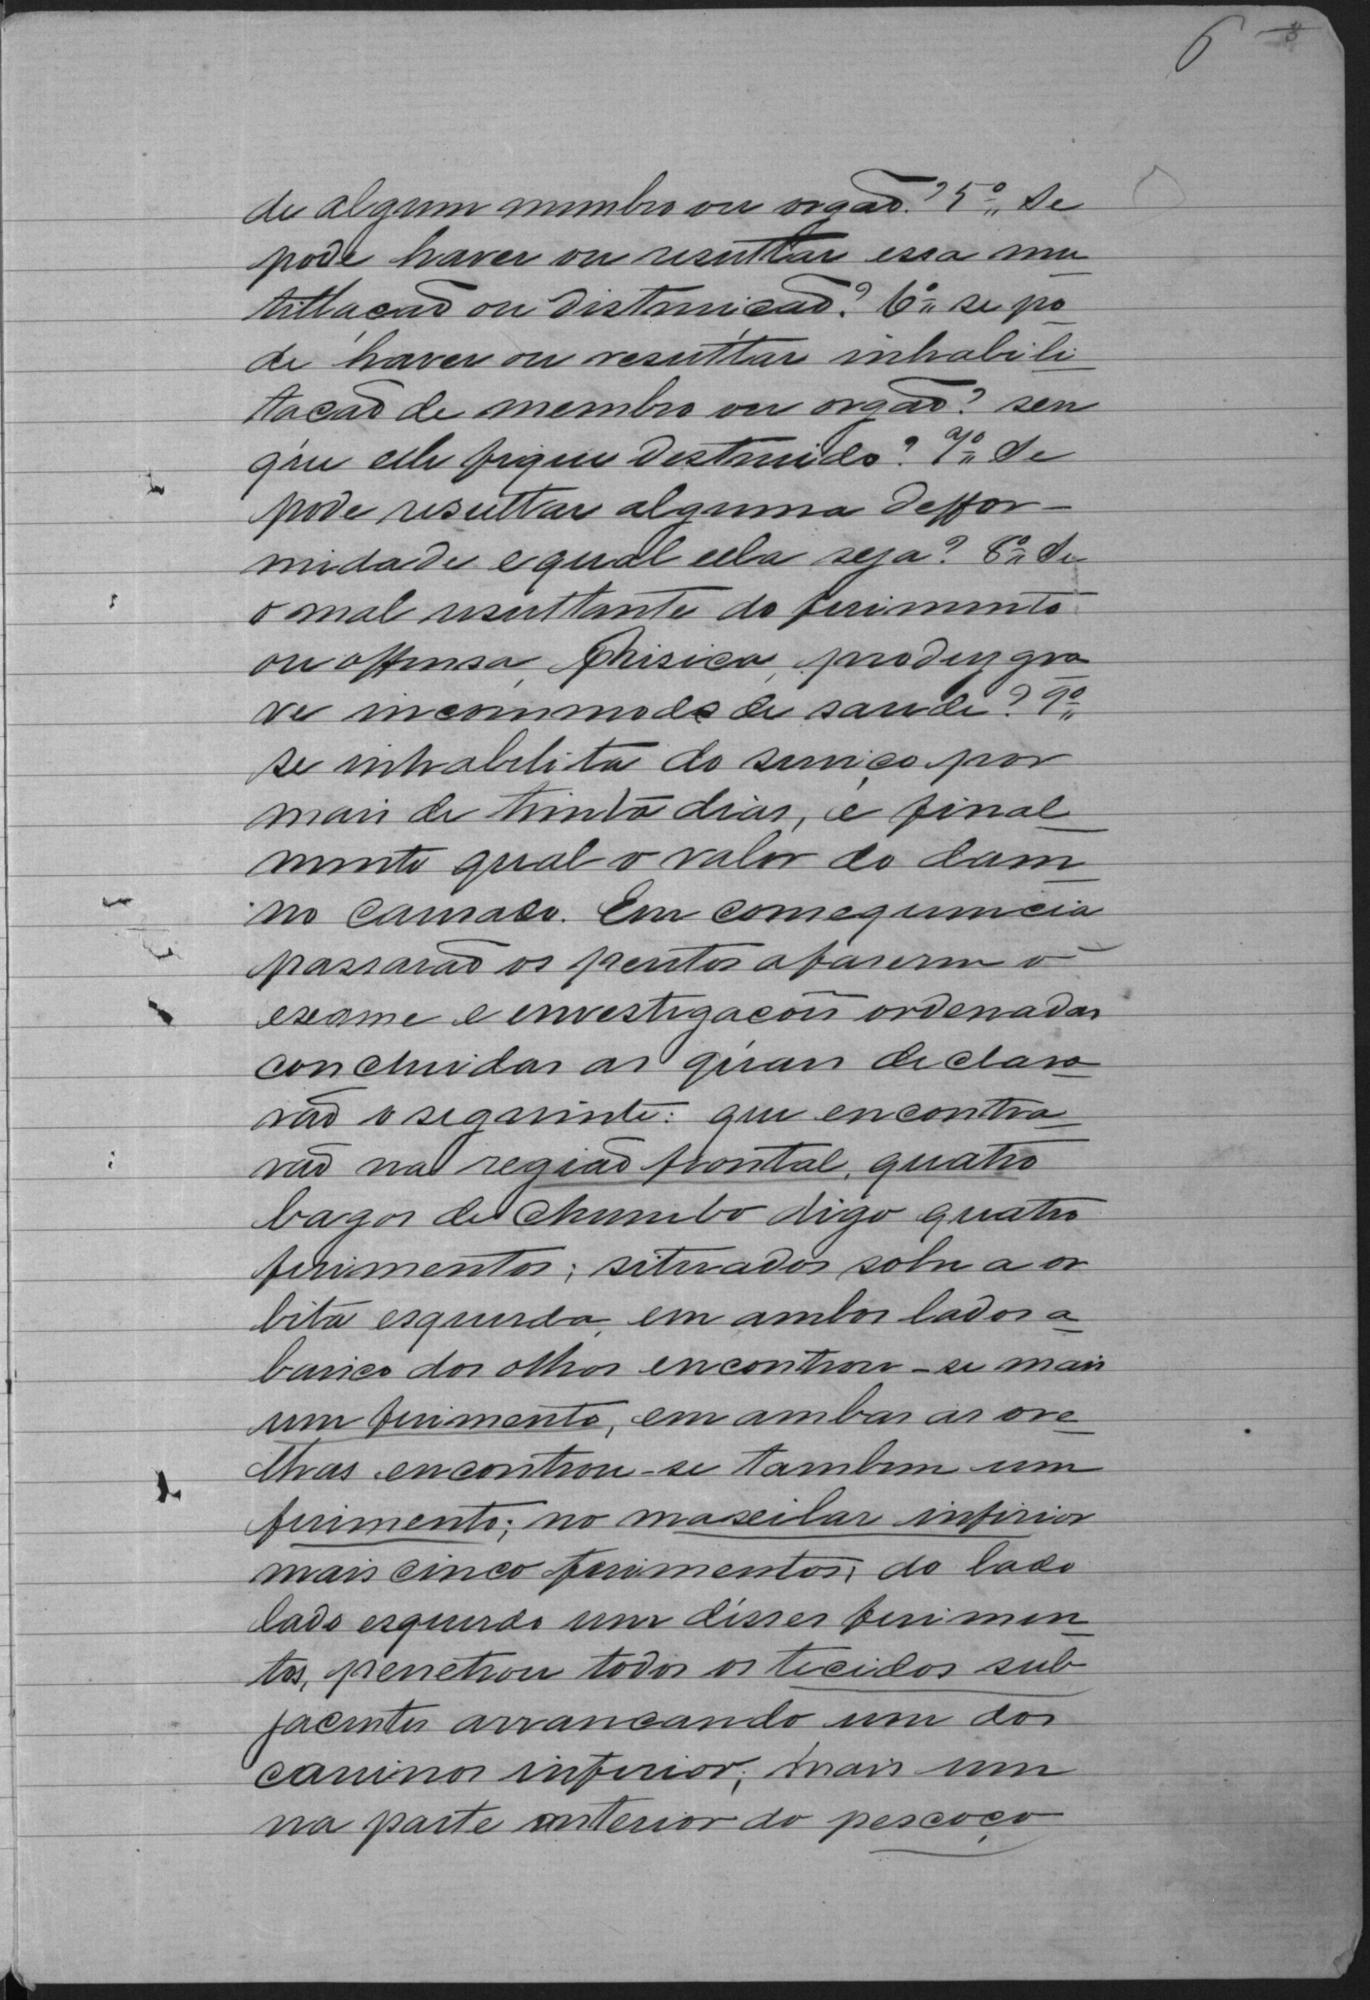 6
de algum membro ou orgaõ? 5º Se
pode haver ou resultar essa mu
tillacaõ ou distruiçaõ? 6º se po
de haver ou resultar inhabili
tacaõ de membro ou orgaõ? sen
que elle fique destruido? 7º Se
pode resultar alguma deffor-
midade e qual ella seja? 8º Se
o mal resultante do ferimento
ou offensa, Phisica, produz gra
ve incommodo de saude? 9º
se inhabilita do serviço por
mais de trinta dias, e final
mente qual o valor do dam
no causado. Em comsequencia
passaraõ os peritos a faserem o
exame e envestigacoẽs ordenadas
concluidas as quais declara
raõ o seguinte: que encontra
raõ na regiaõ frontal, quatro
bagos de chumbo digo quatro
ferimentos; situados sobre a or
bita esquerda, em ambos lados a
baixo dos olhos encontrou-se mais
um ferimento, em ambas as ore
lhas encontrou-se tambem um
ferimento; no maxilar inferior
mais cinco ferimentos; do lado
lado esquerdo um disses ferimen
tos, penetrou todos os tecidos sub
jacentes arrancando um dos
caninos inferior; mais um
na parte anterior do pescoço